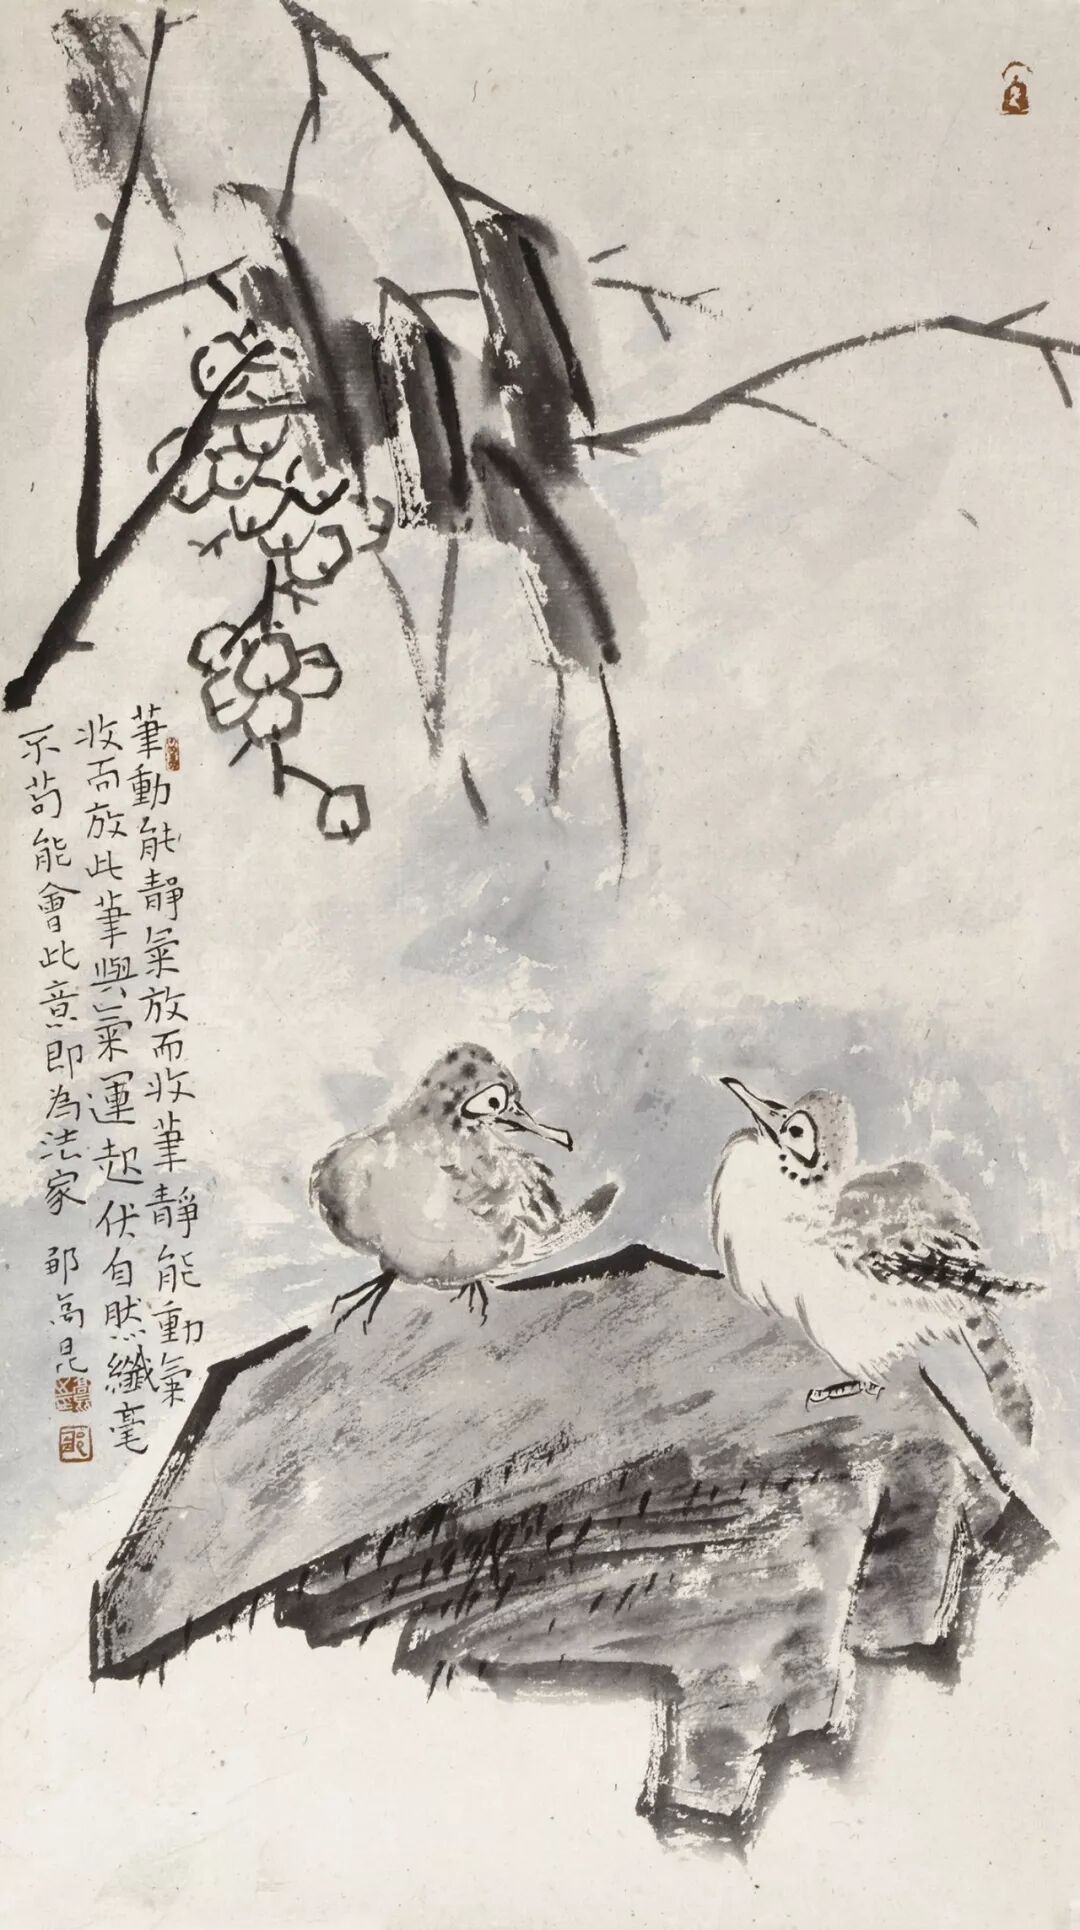 筆動能靜氣放而收筆靜能動氣
收而放此筆與氣運起伏自然纖毫
不苟能會此意即為法家 邹高昆